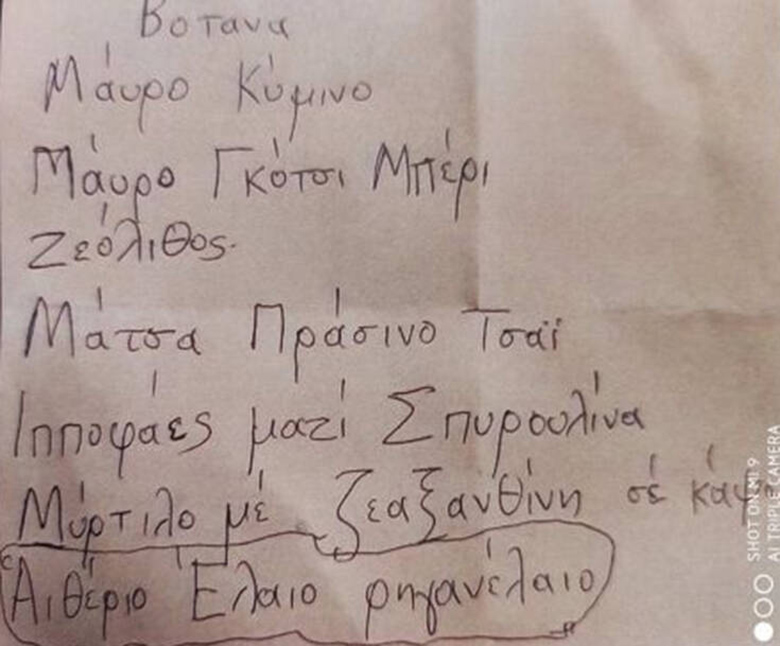 Βοτανα
Μάυρο Κύμινο
Μάυρο Γκότσι Μπέρι
Ζεόλιθος.
Μάτσα Πράσινο Τσαϊ
Ιπποφάες μαζί Σπυρουλίνα
Μύρτιλο μέ ζεαξανθίνη σέ
Αιθέριο Έλαιο ρηγανέλαιο
SHOT ON MI 9
AI TRIPLE CAMERA